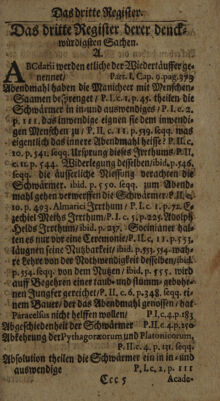 Das dritte Register.
Das dritte Register derer denck-
würdigsten Sachen.
A.
ABCdarii werden etliche der Wiedertäuffer ge-
nennet/ Part. I, Cap. 9. pag. 379
Abendmahl haben die Manicheer mit Menschen-
Saamen besprenget / P. I. c. 1. p. 45. theilen die
Schwärmer in in- und auswendiges / P. I. c. 2.
p. 111. das inwendige eignen sie dem inwendi-
gen Menschen zu / P. II. c. 11. p. 519. seqq. was
eigentlich das innere Abendmahl heisse / P. II. c.
10. p. 541. seqq. Ursprung dieses Irrthums / P. II.
c. 11 p. 544. Widerlegung desselben / ibid. p. 546.
seqq. die äusserliche Niessung verachten die
Schwärmer. ibid. p. 550. seqq. zum Abend-
mahl gehen verwerffen die Schwärmer. P. II. c.
10. p. 403. Almaric Irrthum / P. I. c. 1. p. 72. E-
zechiel Meths Irrthum / P. I. c. 5. p. 225. Adolph
Helds Irrthum / ibid. p. 237. Socinianer hal-
ten es nur vor eine Ceremonie / P. II. c. 11. p. 553.
läugnen seine Nutzbarkeit / ibid. p. 553. 554. wah-
re Lehre von der Nothwendigkeit desselben / ibid.
p. 554. seqq. von dem Nutzen / ibid. p. 555. wird
auff Begehren einer taub- und stumm- gebohr-
nen Jungfer gereichet / P. II. c. 6. p. 348. seqq. ei-
nem Bauer / der das Abendmahl genossen / hat
Paracelsus nicht helffen wollen / P. I. c. 4. p. 183
Abgeschiedenheit der Schwärmer P. II. c. 4. p. 150
Abkehrung der Pythagoræorum und Platonicorum,
P. II. c. 4. p. 151. seqq.
Absolution theilen die Schwärmer ein in in- und
auswendige P. I. c. 2. p. 111
Ccc 5 Acade-